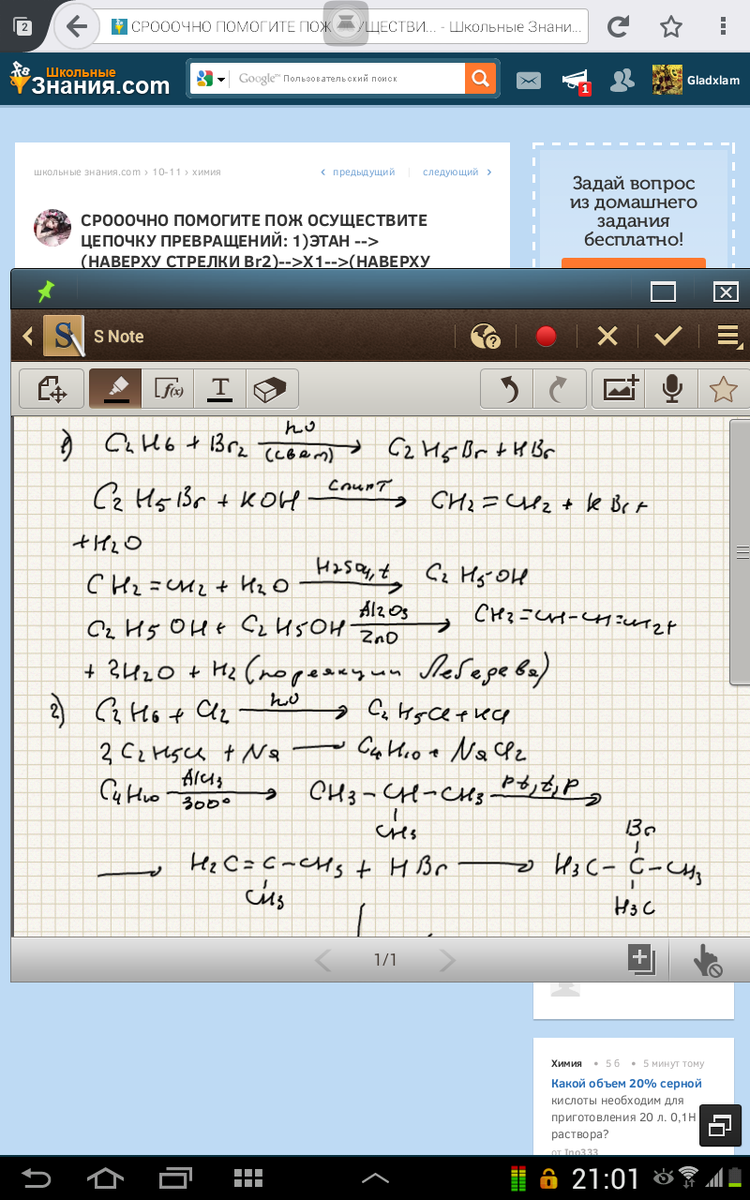 2
СРОООЧНО ПОМОГИТЕ ПОЖ ОСУЩЕСТВИ... - Школьные Знани...
Школьные
Знания.com
Google™ Пользовательский поиск
1
Gladxlam
школьные знания.com › 10-11 › химия
‹ предыдущий | следующий ›
СРОООЧНО ПОМОГИТЕ ПОЖ ОСУЩЕСТВИТЕ
ЦЕПОЧКУ ПРЕВРАЩЕНИЙ: 1)ЭТАН -->
(НАВЕРХУ СТРЕЛКИ Br2)-->X1-->(НАВЕРХУ
Задай вопрос
из домашнего
задания
бесплатно!
S Note
f(x)
T
1) C2H6 + Br2 hυ (свет) → C2H5Br + HBr
C2H5Br + KOH спирт → CH2=CH2 + KBr +
+H2O
CH2=CH2 + H2O H2SO4, t → C2H5OH
C2H5OH + C2H5OH Al2O3 ZnO → CH2=CH-CH=CH2+
+ 2H2O + H2 (по реакции Лебедева)
2) C2H6 + Cl2 hυ → C2H5Cl + HCl
2C2H5Cl + Na → C4H10 + NaCl2
C4H10 AlCl3 300° → CH3-CH-CH3 Pt, t, P →
CH3
Br
→ H2C=C-CH3 + HBr → H3C-C-CH3
CH3
H3C
1/1
Химия • 5 б • 5 минут тому
Какой объем 20% серной
кислоты необходим для
приготовления 20 л. 0,1Н
раствора?
от Ino333
21:01